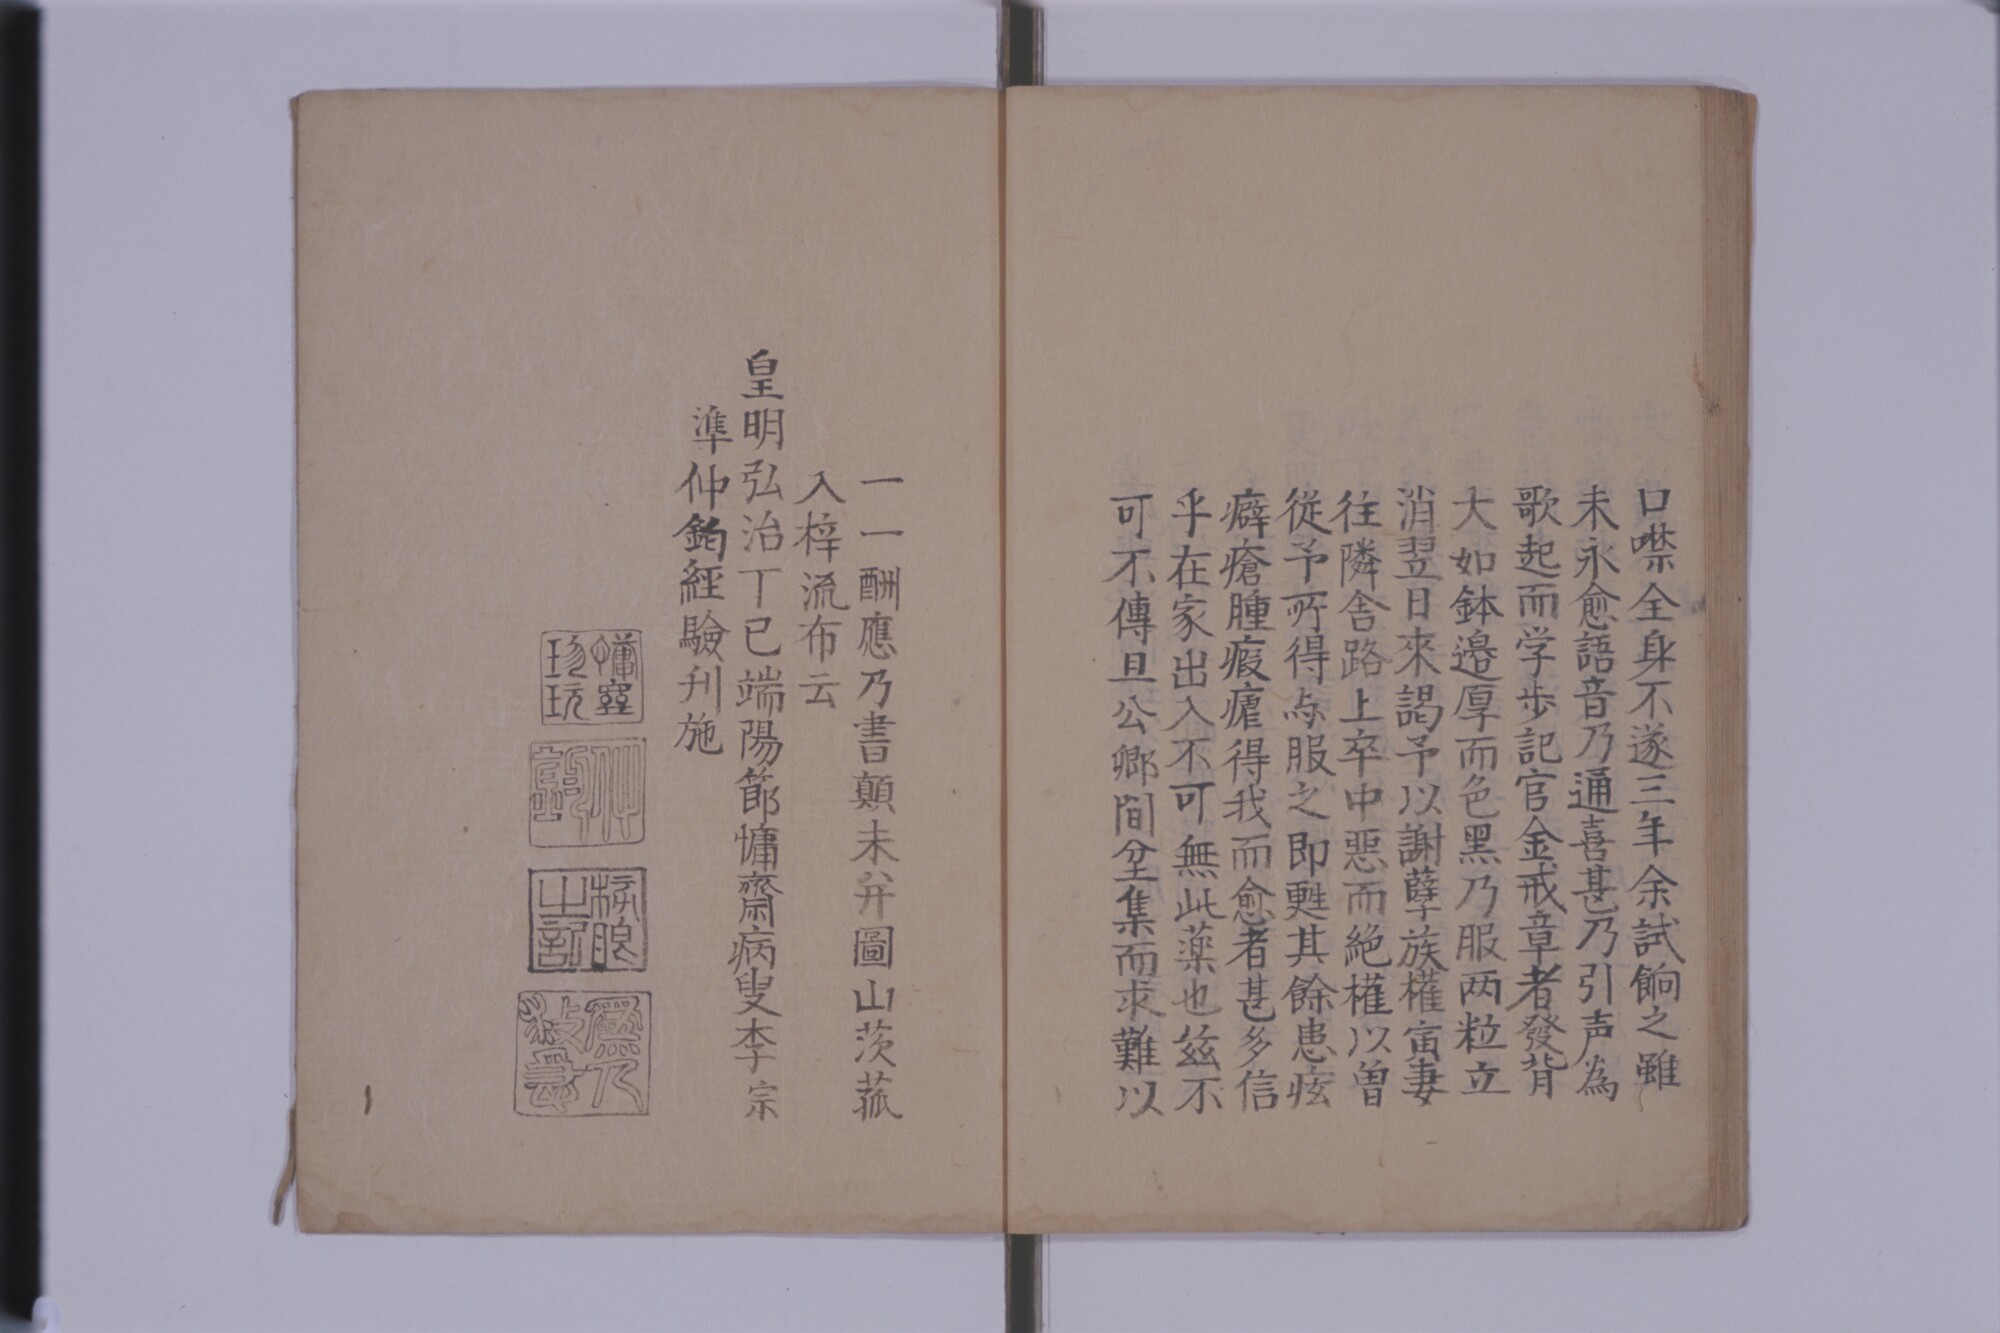 口噤全身不遂三年余試餉之雖
未永愈語音乃通喜甚乃引声為
歌起而学步記官金戒章者發背
大如鉢邉厚而色黑乃服两粒立
消翌日來謁予以謝孽族權寅妻
往隣舎路上卒中惡而絶權以曽
從予所得与服之即甦其餘患痃
癖瘡腫瘕瘧得我而愈者甚多信
乎在家出入不可無此薬也玆不
可不傳且公卿間坌集而求難以
一一酬應乃書顛末并圖山茨菰
入梓流布云
皇明弘治丁巳端陽節慵齋病叟李宗
準仲鈞經驗刋施
慵窩
珎玩
仲
鈞
之記